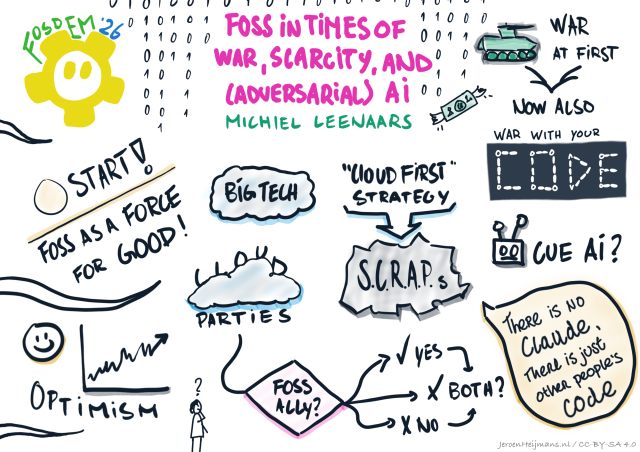 FOSDEM '26
FOSS IN TIMES OF
WAR, SCARCITY, AND
(ADVERSARIAL) Ai
MICHIEL LEENAARS
WAR
AT FIRST
NOW ALSO
WAR WITH YOUR
CODE
START!
FOSS AS A FORCE
FOR GOOD!
BIG TECH
"CLOUD FIRST"
STRATEGY
S.C.R.A.P.s
CLOUD
PARTIES
CUE Ai?
THERE IS NO
CLAUDE,
THERE IS JUST
OTHER PEOPLE'S
CODE
OPTIMISM
?
FOSS
ALLY?
✓ YES
X BOTH?
X NO
JeroenHeijmans.nl / CC-BY-SA 4.0